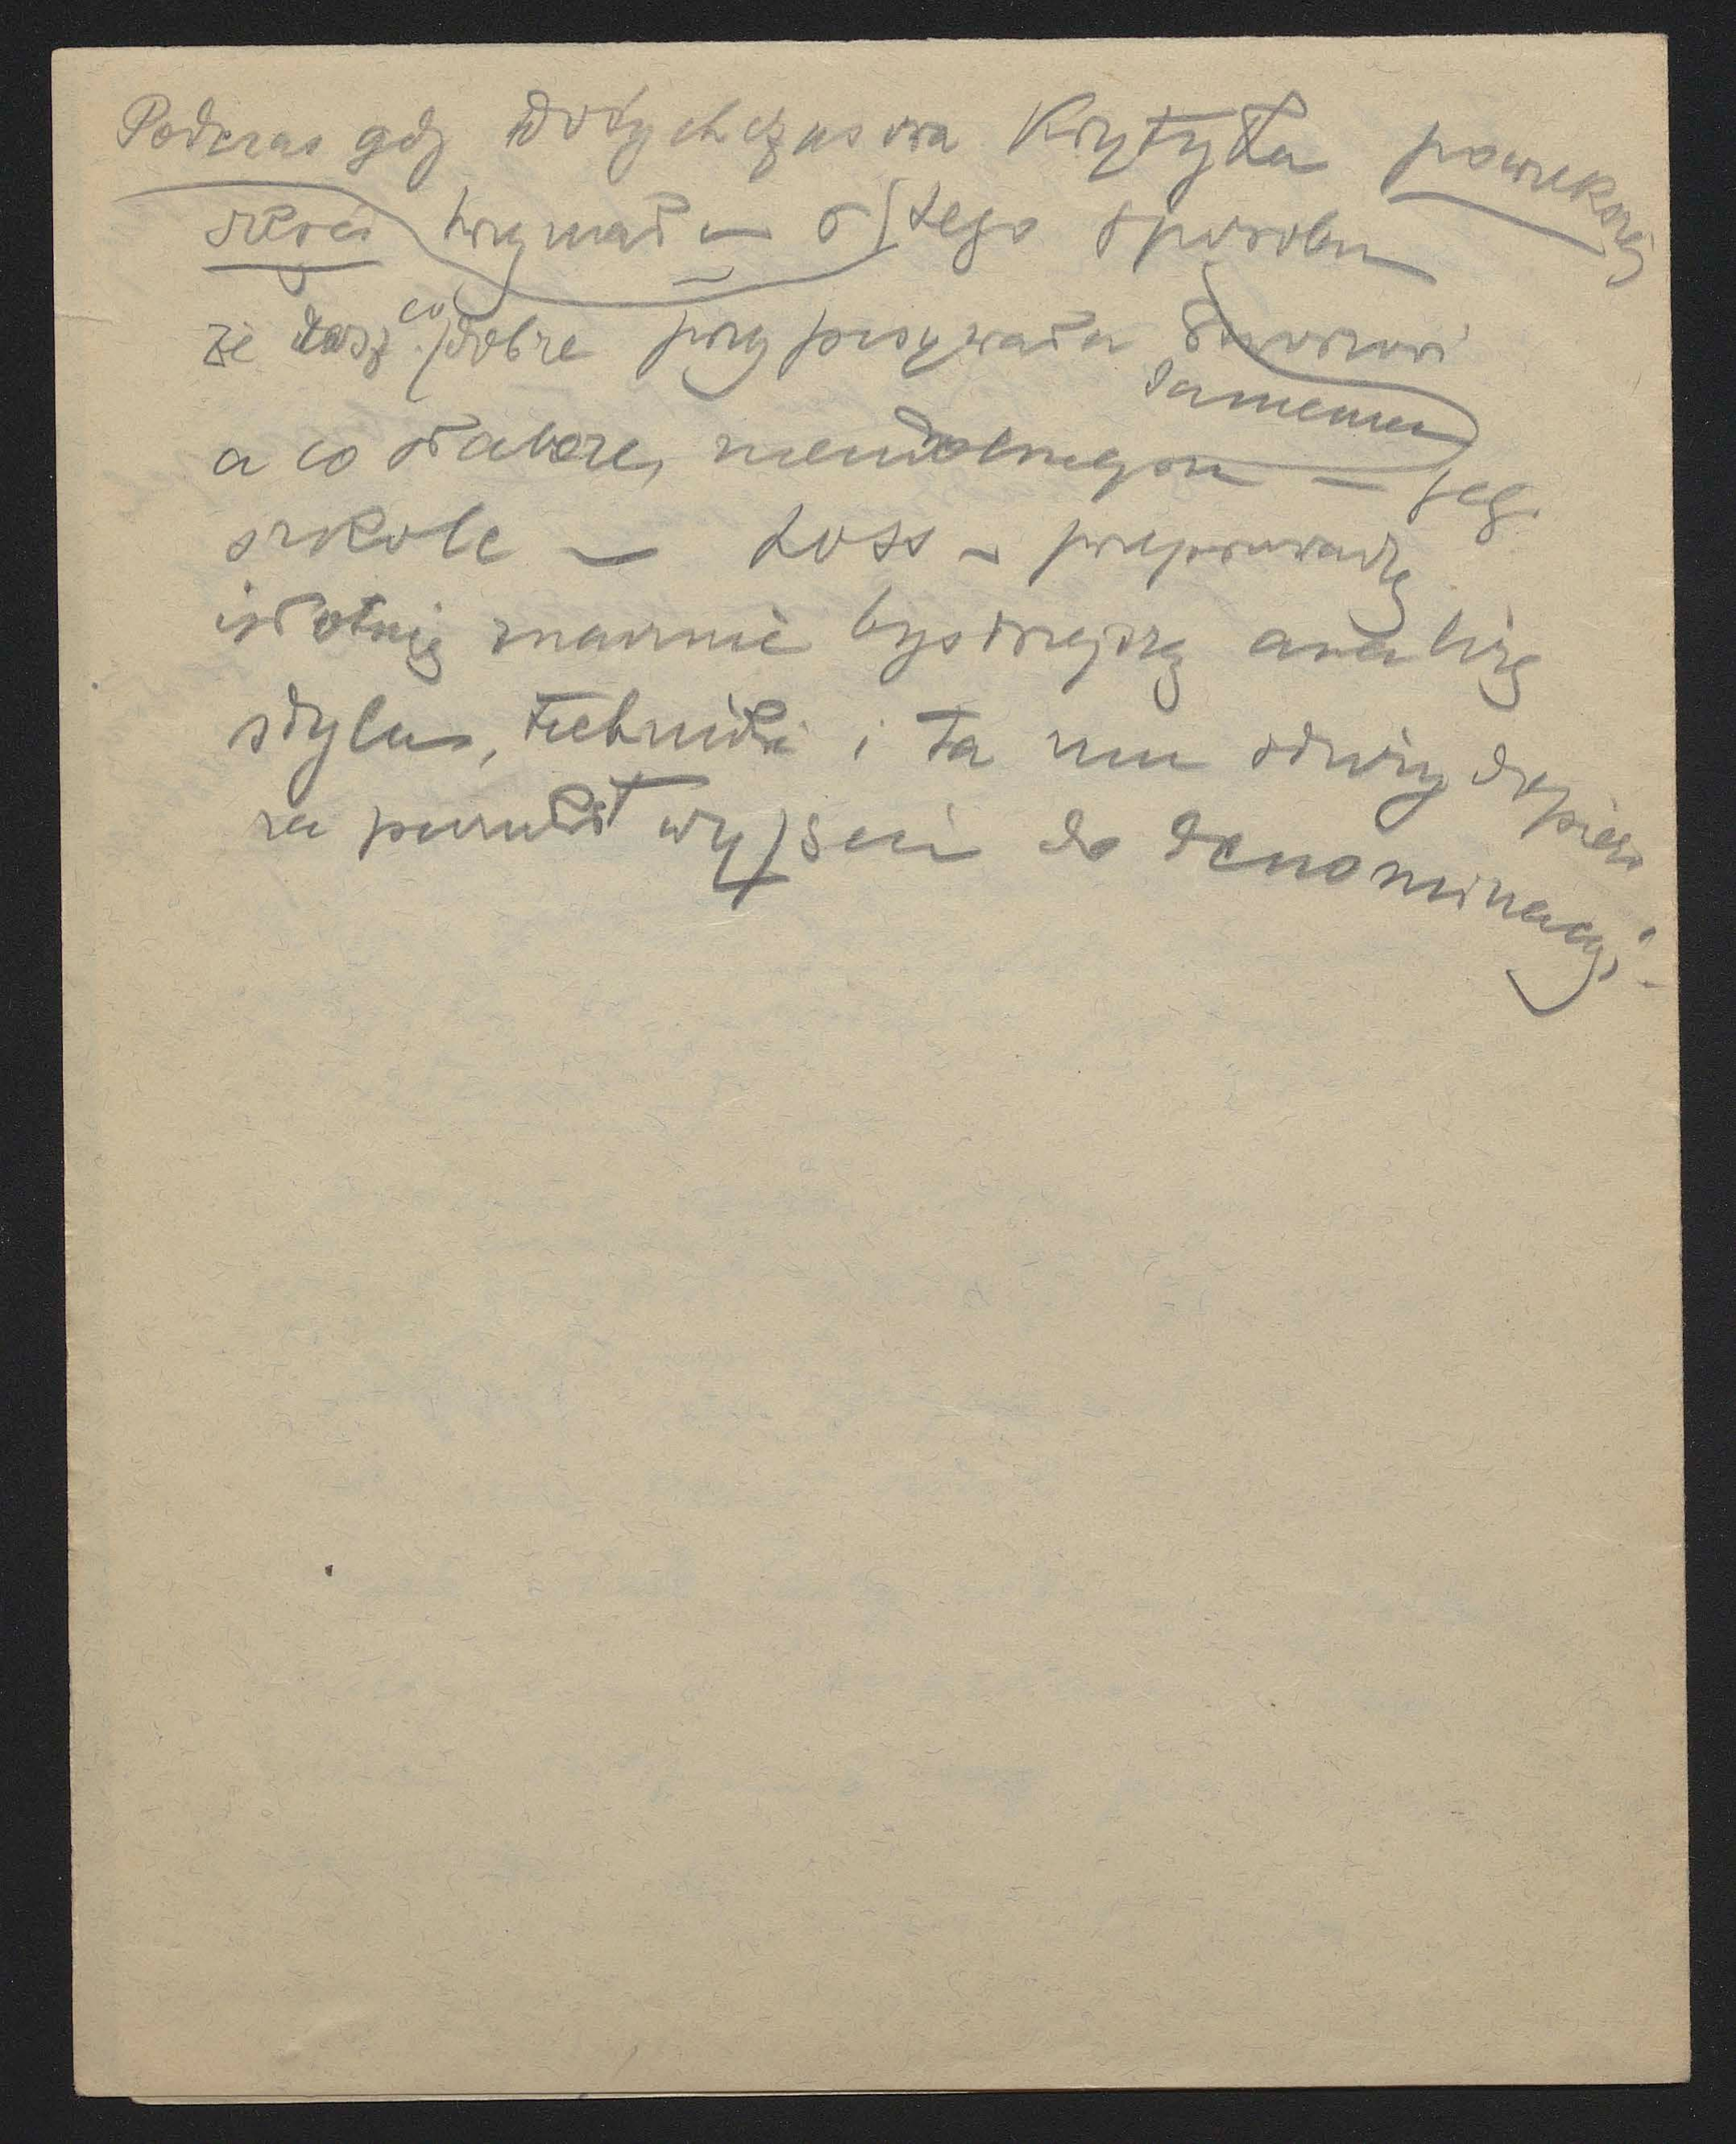 Podczas gdy dotychczasowa Krytyka powiększej
części trzymała się tego sposobu
że co dobre przypisywała Stwoszowi
samemu
a co słabsze, nieudolnego — jego
szkole — Loss — przeprowadza
istotnie znacznie bystrzejszą analizę
stylu, techniki i ta mu służy dopiero
za punkt wyjścia do denominacji